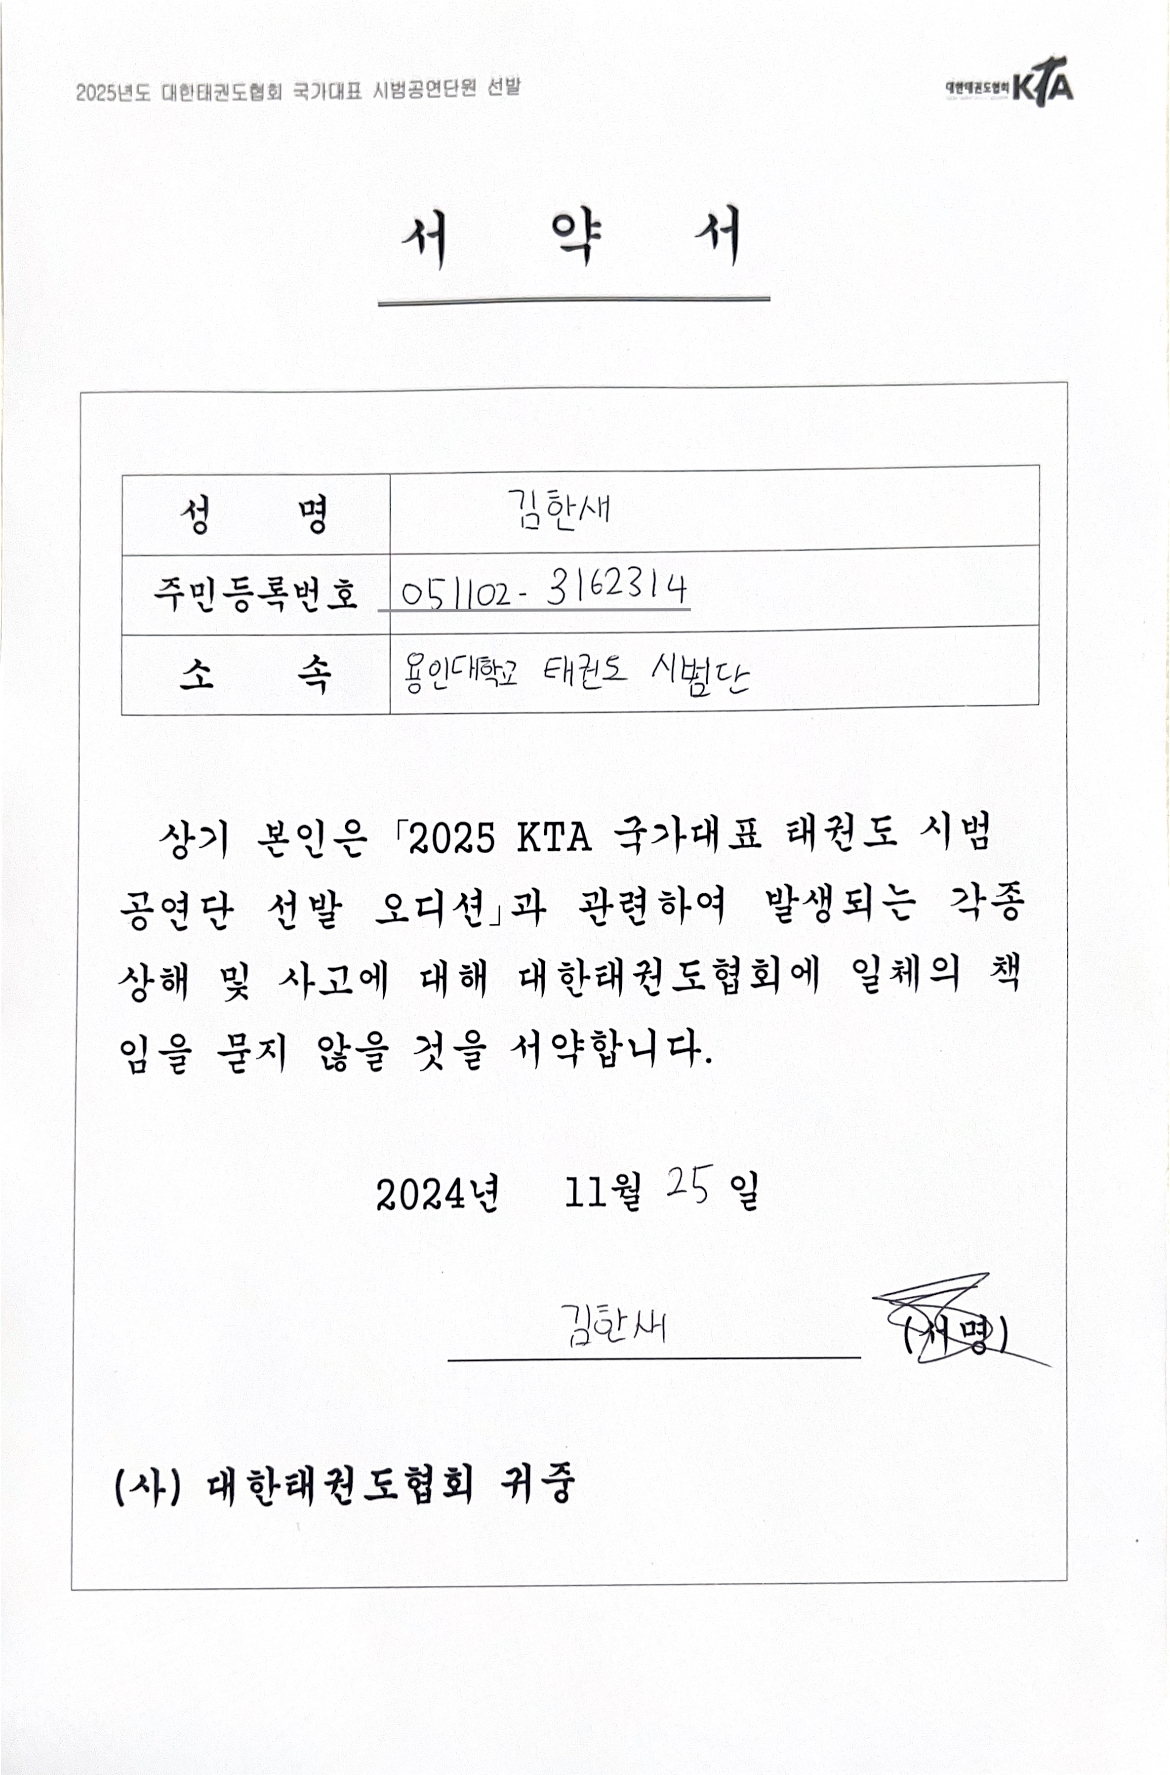 2025년도 대한태권도협회 국가대표 시범공연단원 선발
대한태권도협회 KTA
서 약 서
성 명 김한새
주민등록번호 051102-3162314
소 속 용인대학교 태권도 시범단
상기 본인은 「2025 KTA 국가대표 태권도 시범
공연단 선발 오디션」과 관련하여 발생되는 각종
상해 및 사고에 대해 대한태권도협회에 일체의 책
임을 묻지 않을 것을 서약합니다.
2024년 11월 25일
김한새 (서명)
(사) 대한태권도협회 귀중